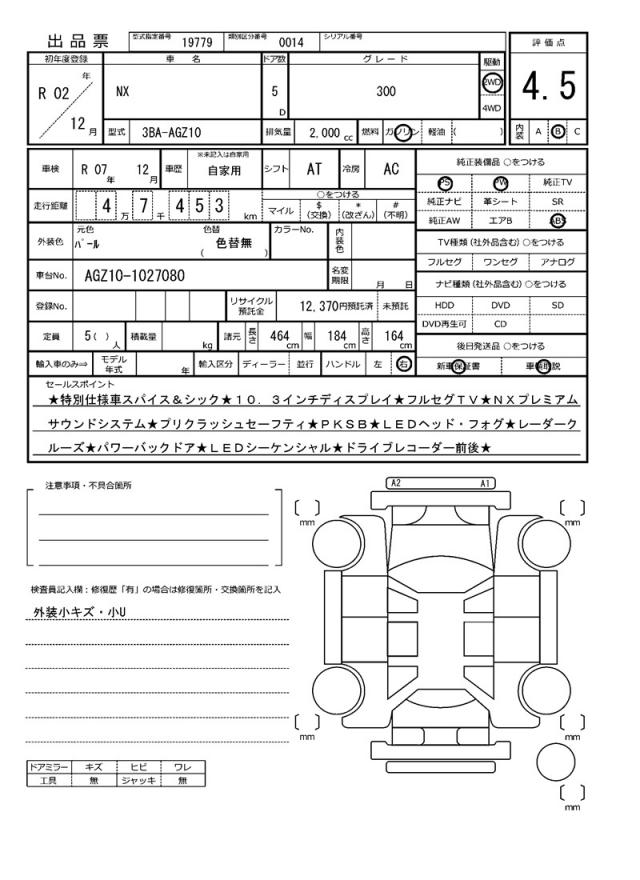 出品票 型式指定番号 19779 類別区分番号 0014 シリアル番号
評価点
4.5
内装 A B C
初年度登録 車名 ドア数 グレード 駆動
R 02 年 12 月 NX 5 D 300 2WD 4WD
型式 3BA-AGZ10 排気量 2,000 cc 燃料 ガソリン 軽油 ( )
車検 R 07 年 12 月 車歴 ※未記入は自家用 自家用 シフト AT 冷房 AC
走行距離 4 万 7 千 4 5 3 km
○をつける
マイル $ (交換) * (改ざん) # (不明)
外装色 元色 パール 色替 ( 色替無 ) カラーNo. 内装色
車台No. AGZ10-1027080 名変期限 月 日
登録No. リサイクル預託金 12,370円預託済 未預託
定員 5 ( ) 人 積載量 kg 諸元 長さ 464 cm 幅 184 cm 高さ 164 cm
輸入車のみ⇒ モデル年式 年 輸入区分 ディーラー 並行 ハンドル 左 右
純正装備品 ○をつける
PS PW 純正TV
純正ナビ 革シート SR
純正AW エアB ABS
TV種類 (社外品含む) ○をつける
フルセグ ワンセグ アナログ
ナビ種類 (社外品含む) ○をつける
HDD DVD SD
DVD再生可 CD
後日発送品 ○をつける
新車保証書 車輌取説
セールスポイント
★特別仕様車スパイス&シック★10.3インチディスプレイ★フルセグTV★NXプレミアム
サウンドシステム★プリクラッシュセーフティ★PKSB★LEDヘッド・フォグ★レーダーク
ルーズ★パワーバックドア★LEDシーケンシャル★ドライブレコーダー前後★
注意事項・不具合箇所
検査員記入欄：修復歴「有」の場合は修復箇所・交換箇所を記入
外装小キズ・小U
ドアミラー キズ ヒビ ワレ
工具 無 ジャッキ 無
A2 A1
mm
mm
mm
mm
mm